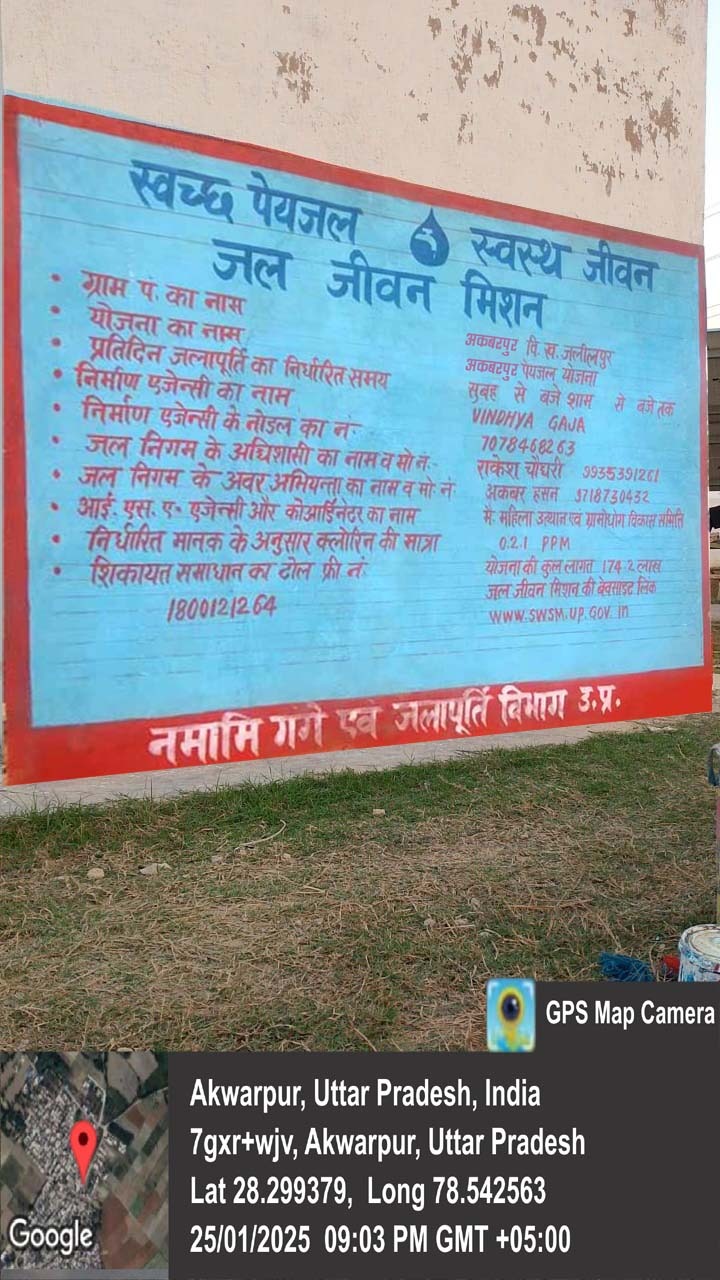 स्वच्छ पेयजल स्वस्थ जीवन
जल जीवन मिशन
• ग्राम पं. का नाम
• योजना का नाम
• प्रतिदिन जलापूर्ति का निर्धारित समय
• निर्माण एजेन्सी का नाम
• निर्माण एजेन्सी के नोडल का नं.
• जल निगम के अधिशासी का नाम व मो नं.
• जल निगम के अवर अभियन्ता का नाम व मो नं
• आई. एस. ए. एजेन्सी और कोआर्डिनेटर का नाम
• निर्धारित मानक के अनुसार क्लोरिन की मात्रा
• शिकायत समाधान का टोल फ्री नं.
1800121264
अकबरपुर वि. ख. जलीलपुर
अकबरपुर पेयजल योजना
सुबह से बजे शाम से बजे तक
VINDHYA GAJA
7078468263
राकेश चौधरी 9935391261
अकबर हसन 9718730432
मै. महिला उत्थान एवं ग्रामोधोग विकास समिति
0.2.1 PPM
योजना की कुल लागत 174.2 लाख
जल जीवन मिशन की बेवसाइट लिंक
www.SWSM.UP.GOV.in
नमामि गंगे एवं जलापूर्ति विभाग उ.प्र.
GPS Map Camera
Akwarpur, Uttar Pradesh, India
7gxr+wjv, Akwarpur, Uttar Pradesh
Lat 28.299379, Long 78.542563
25/01/2025 09:03 PM GMT +05:00
Google